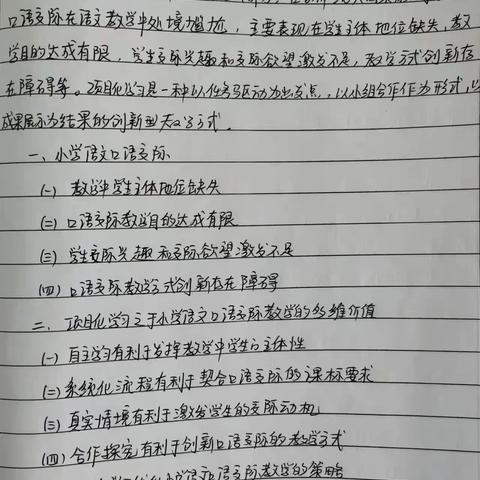 口语交际在语文教学中处境尴尬,主要表现在学生主体地位缺失,教
学目的达成有限,学生交际兴趣和交际欲望激发不足,教学方式创新存
在障碍等。项目化学习是一种以任务驱动为出发点,以小组合作作为形式,以
成果展示为结果的创新型学习方式。
一、小学语文口语交际
(一) 教学中学生主体地位缺失
(二) 口语交际教学目的达成有限
(三) 学生交际兴趣和交际欲望激发不足
(四) 口语交际教学方式创新存在障碍
二、项目化学习之于小学语文口语交际教学的多维价值
(一) 自主学习有利于发挥教学中学生的主体性
(二) 系统化流程有利于契合口语交际的课标要求
(三) 真实情境有利于激发学生的交际动机
(四) 合作探究有利于创新口语交际的教学方式
小学语文口语交际教学的策略